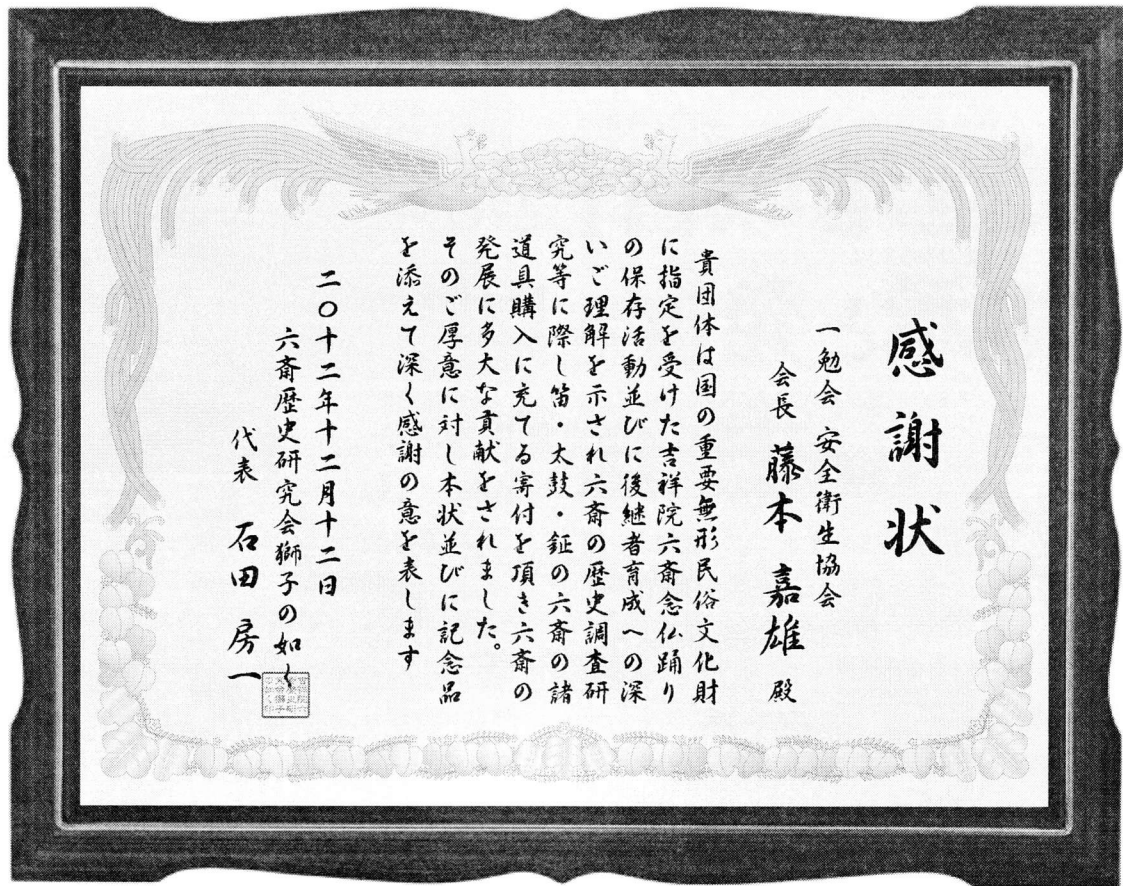 感謝状
一勉会 安全衛生協会
会長 藤本 嘉雄 殿
貴団体は国の重要無形民俗文化財
に指定を受けた吉祥院六斎念仏踊り
の保存活動並びに後継者育成への深
いご理解を示され六斎の歴史調査研
究等に際し笛・太鼓・鉦の六斎の諸
道具購入に充てる寄付を頂き六斎の
発展に多大な貢献をされました。
そのご厚意に対し本状並びに記念品
を添えて深く感謝の意を表します
二〇十二年十二月十二日
六斎歴史研究会獅子の如く
代表 石田 房一